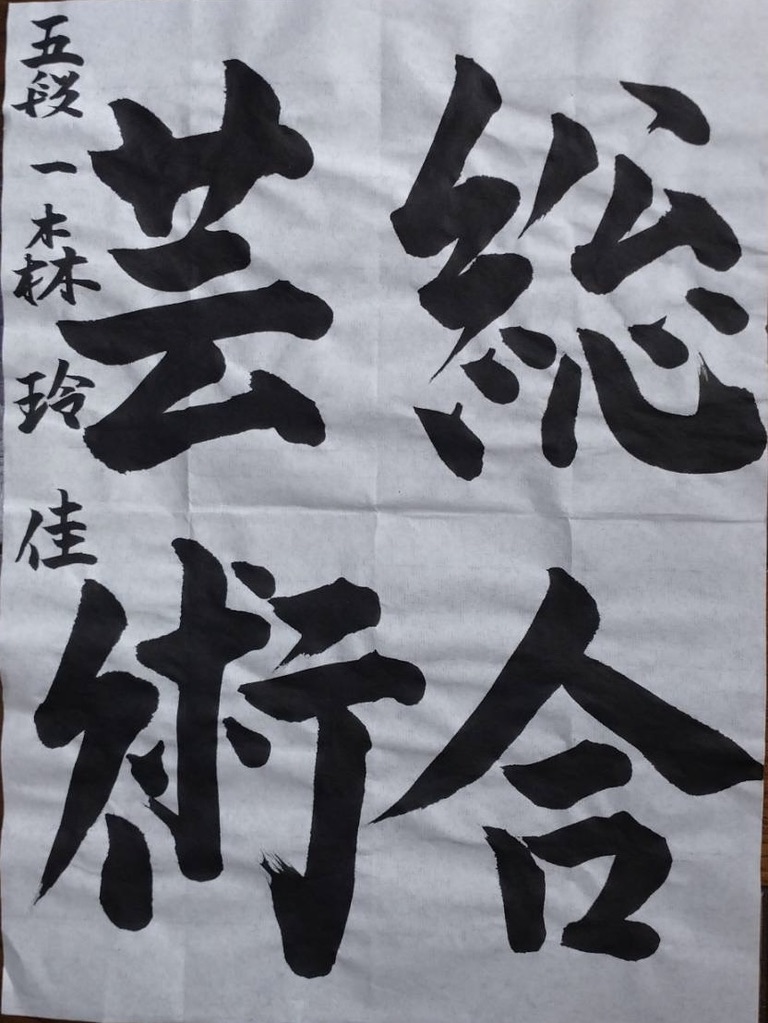 総合
芸術
五段 一森 玲佳